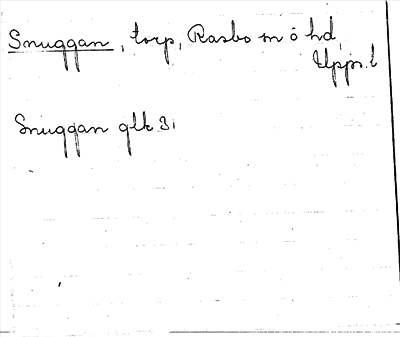 Snuggan, torp, Rasbo sn ö hd,
Upps. l
Snuggan glk 3i